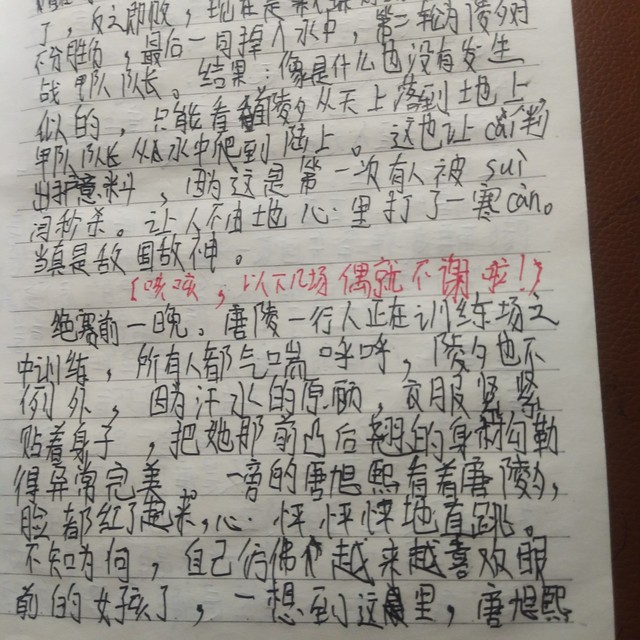 了，反之即败，现在是
不分胜负，最后一同掉入水中，第二轮为陵夕对
战甲队队长。结果：像是什么也没有发生
似的，只能看着陵夕从天上落到地上
甲队队长从水中爬到陆上。这也让cái判
出乎意料，因为这是第一次有人被suì
间秒杀。让人不由地心里打了一寒càn。
当真是敌国敌神。
【咳咳，以下几场偶就不谢啦！】
绝赛前一晚。唐陵一行人正在训练场之
中训练，所有人都气喘呼呼，陵夕也不
例外，因为汗水的原顾，衣服紧紧
贴着身子，把她那前凸后翘的身材勾勒
得异常完美。一旁的唐旭熙看着唐陵夕，
脸都红了起来，心怦怦怦地直跳。
不知为何，自己仿佛越来越喜欢眼
前的女孩了，一想到这里，唐旭熙